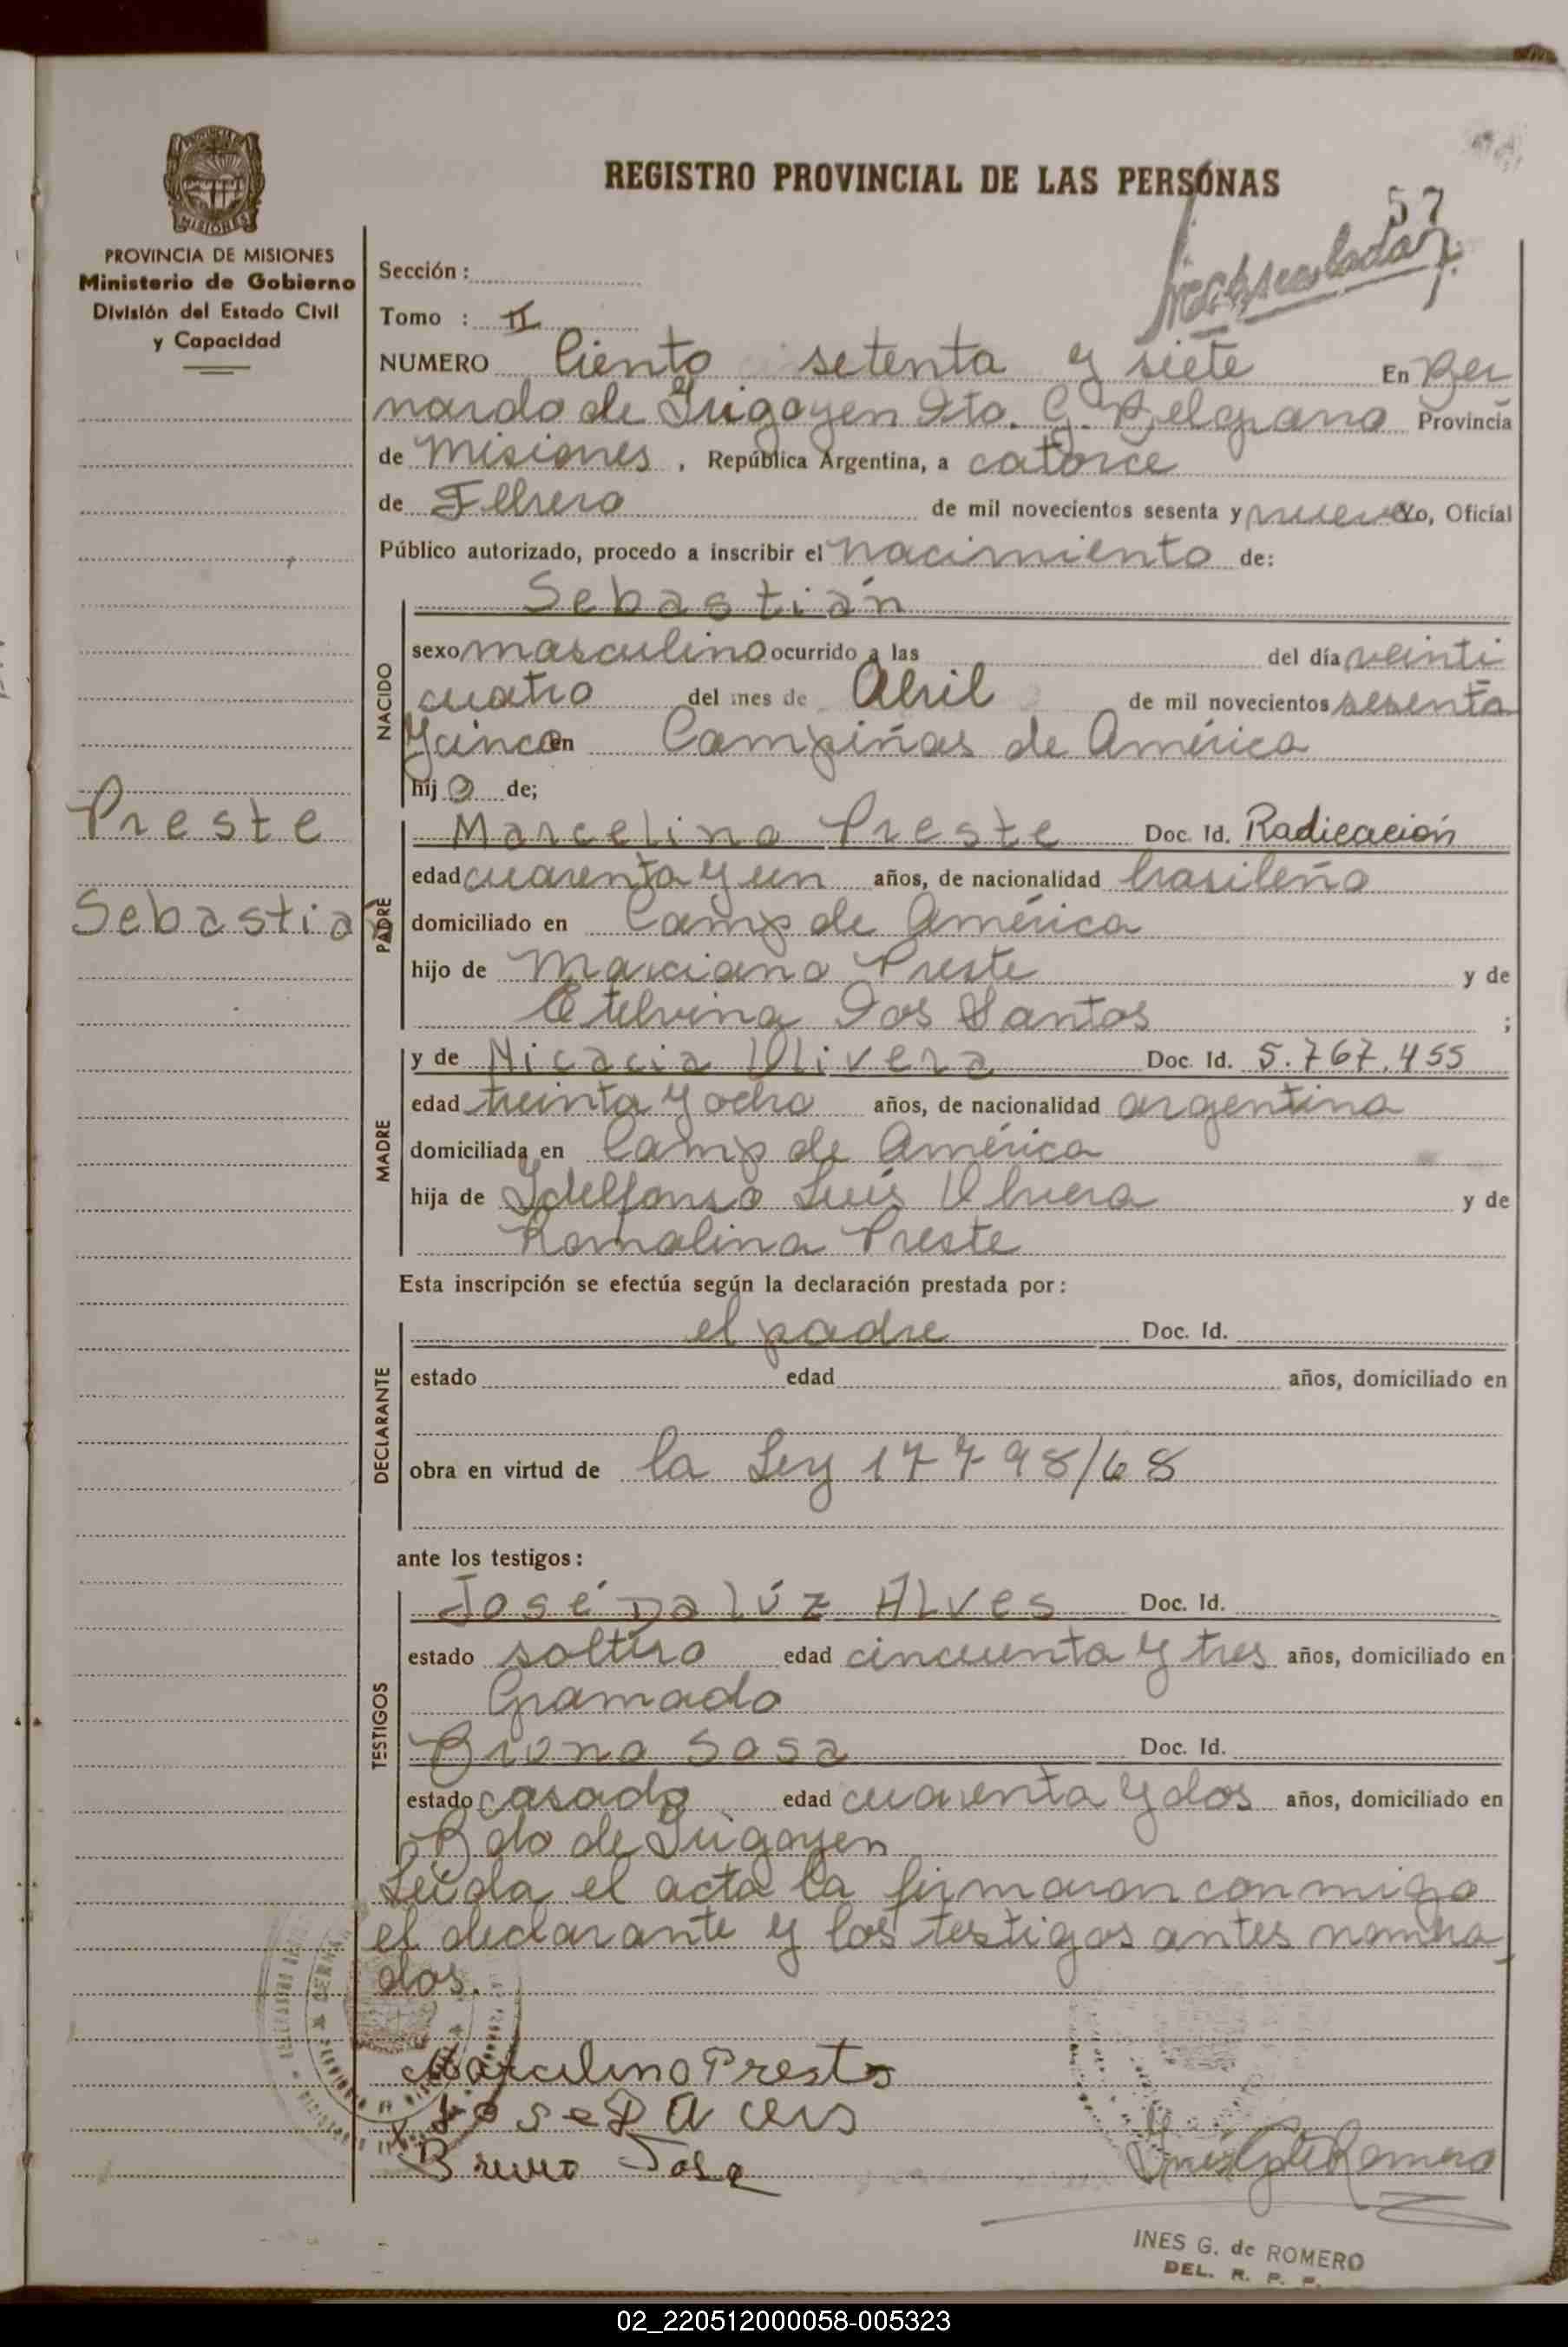 REGISTRO PROVINCIAL DE LAS PERSONAS
57
PROVINCIA DE MISIONES
Ministerio de Gobierno
División del Estado Civil
y Capacidad
MISIONES
Sección :
Tomo : II
NUMERO Ciento setenta y siete En Ber
nardo de Irigoyen Dto. G. Belgrano Provincia
de Misiones , República Argentina, a catorce
de Febrero de mil novecientos sesenta y nueve Yo, Oficial
Público autorizado, procedo a inscribir el nacimiento de:
NACIDO
Sebastián
sexo masculino ocurrido a las del día veinti
cuatro del mes de Abril de mil novecientos sesenta
y cinco en Campiñas de América
hij o de;
Preste
Sebastia
PADRE
Marcelino Preste Doc. Id. Radicación
edad cuarenta y un años, de nacionalidad brasileña
domiciliado en Camp de América
hijo de Marciano Preste y de
Etelvina Dos Santos ;
MADRE
y de Nicacia Olivera Doc. Id. 5.767.455
edad treinta y ocho años, de nacionalidad argentina
domiciliada en Camp de América
hija de Ildelfonso Luis Olivera y de
Romalina Preste
Esta inscripción se efectúa según la declaración prestada por :
DECLARANTE
el padre Doc. Id.
estado edad años, domiciliado en
obra en virtud de la Ley 17798/68
ante los testigos :
TESTIGOS
José Da lúz Alves Doc. Id.
estado soltero edad cincuenta y tres años, domiciliado en
Gramado
Bruno Sosa Doc. Id.
estado casado edad cuarenta y dos años, domiciliado en
Bdo de Irigoyen
Leída el acta la firmaron conmigo
el declarante y los testigos antes nombra
dos.
Marcelino Prests
Jose D A
Bruno Sosa
INES G. de ROMERO
DEL. R. P. P.
02_220512000058-005323